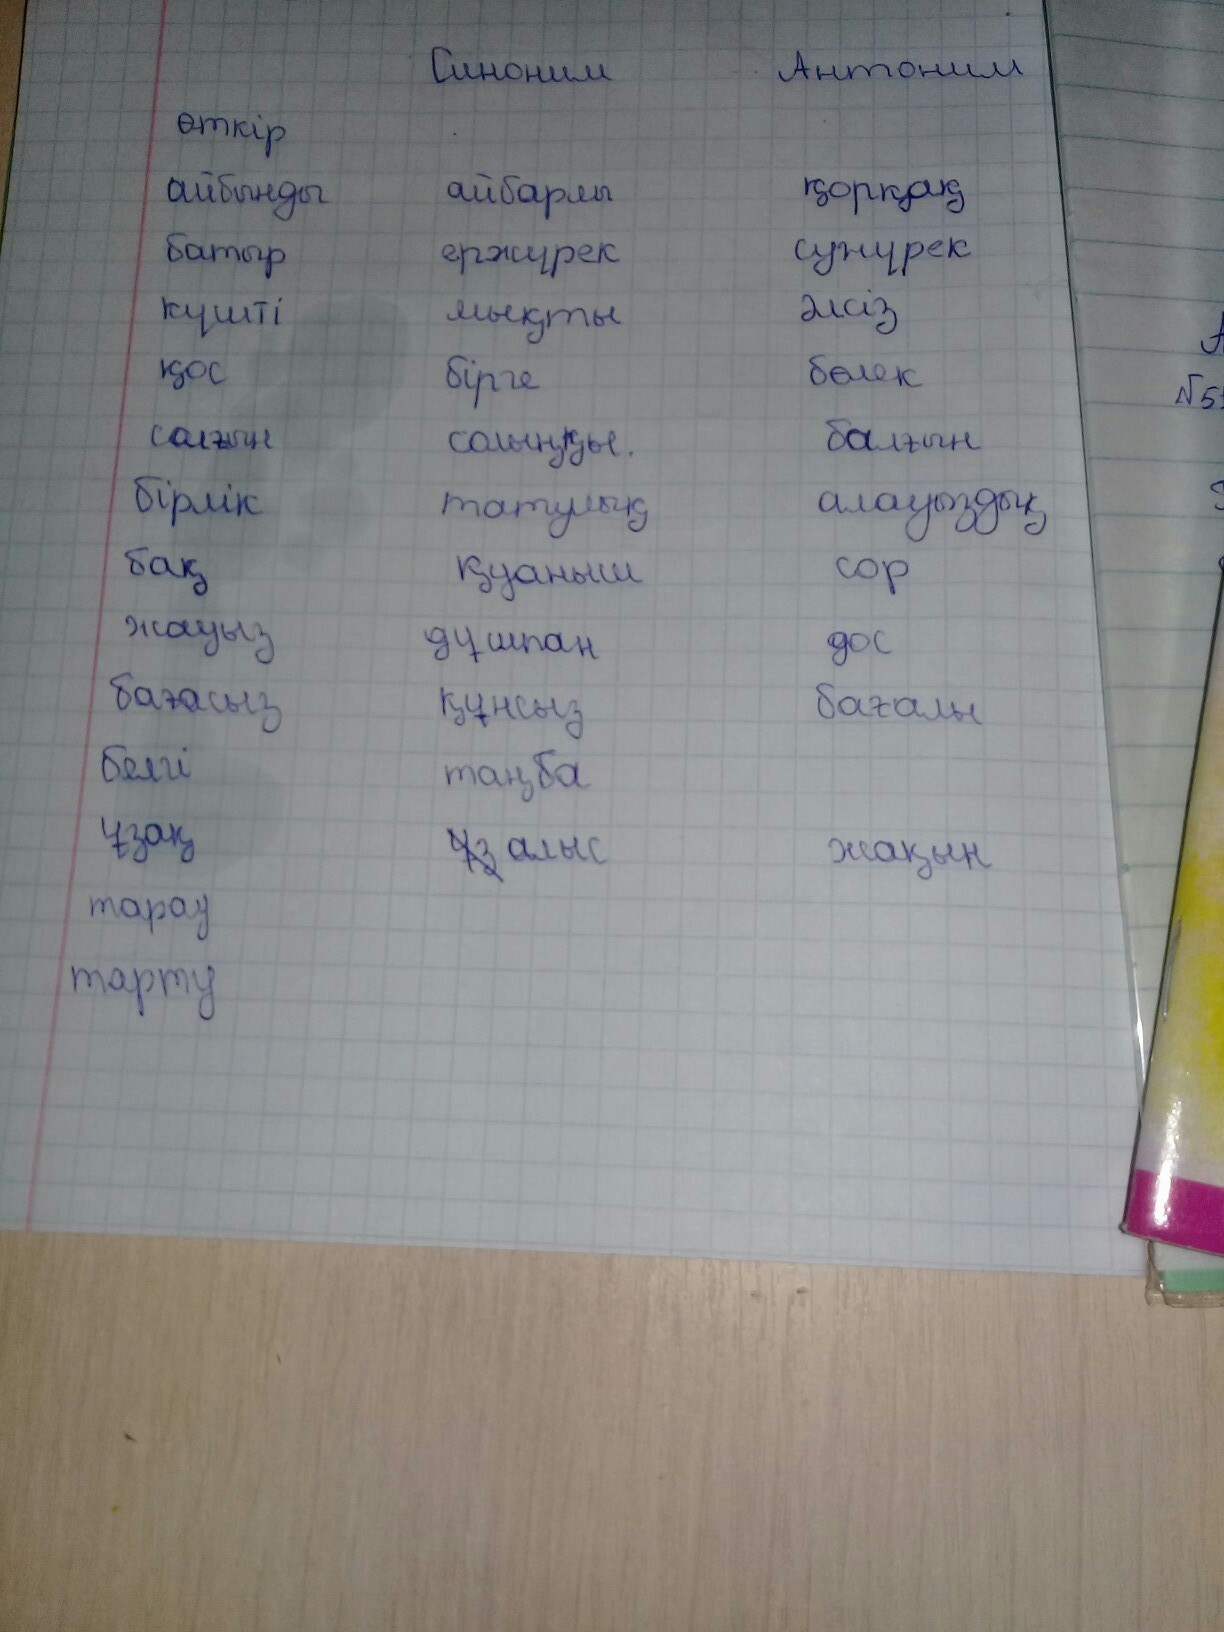 Синоним Антоним
өткір
айбынды айбарлы қорқақ
батыр ержүрек сужүрек
күшті мықты әлсіз
қос бірге бөлек
салғын салыңқы. балғын
бірлік татулық алауыздық
бақ қуаныш сор
жауыз дұшпан дос
бағасыз құнсыз бағалы
белгі таңба
ұзақ алыс жақын
тарау
тарту